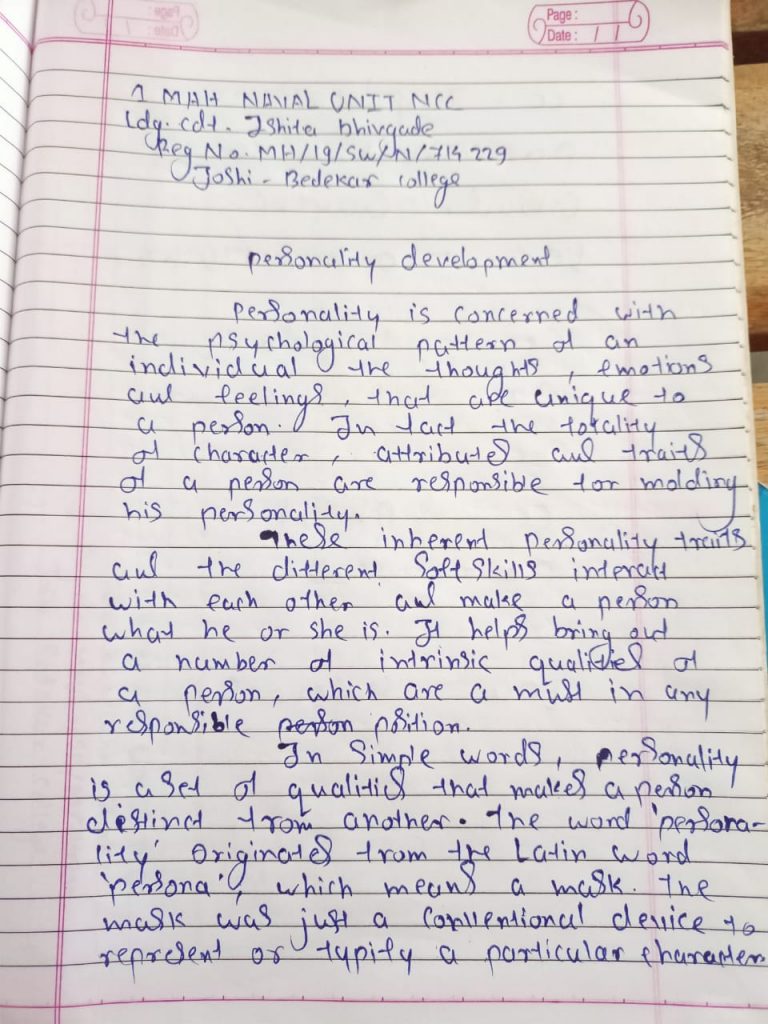 Page :
Date : / /
1 MAH NAVAL UNIT NCC
Ldg. cdt. Ishita Bhivgade
Reg No. MH/19/SW/N/714229
Joshi - Bedekar college
personality development
personality is concerned with
the psychological pattern of an
individual the thoughts, emotions
and feelings, that are unique to
a person. In fact the totality
of character, attributes and traits
of a person are responsible for molding
his personality.
These inherent personality traits
and the different Soft skills interact
with each other and make a person
what he or she is. It helps bring out
a number of intrinsic qualities of
a person, which are a must in any
responsible person psition.
In Simple words, personality
is a set of qualities that makes a person
distinct from another. The word 'persona-
lity' originates from the Latin word
'persona', which means a mask. The
mask was just a conventional device to
represent or typify a particular character